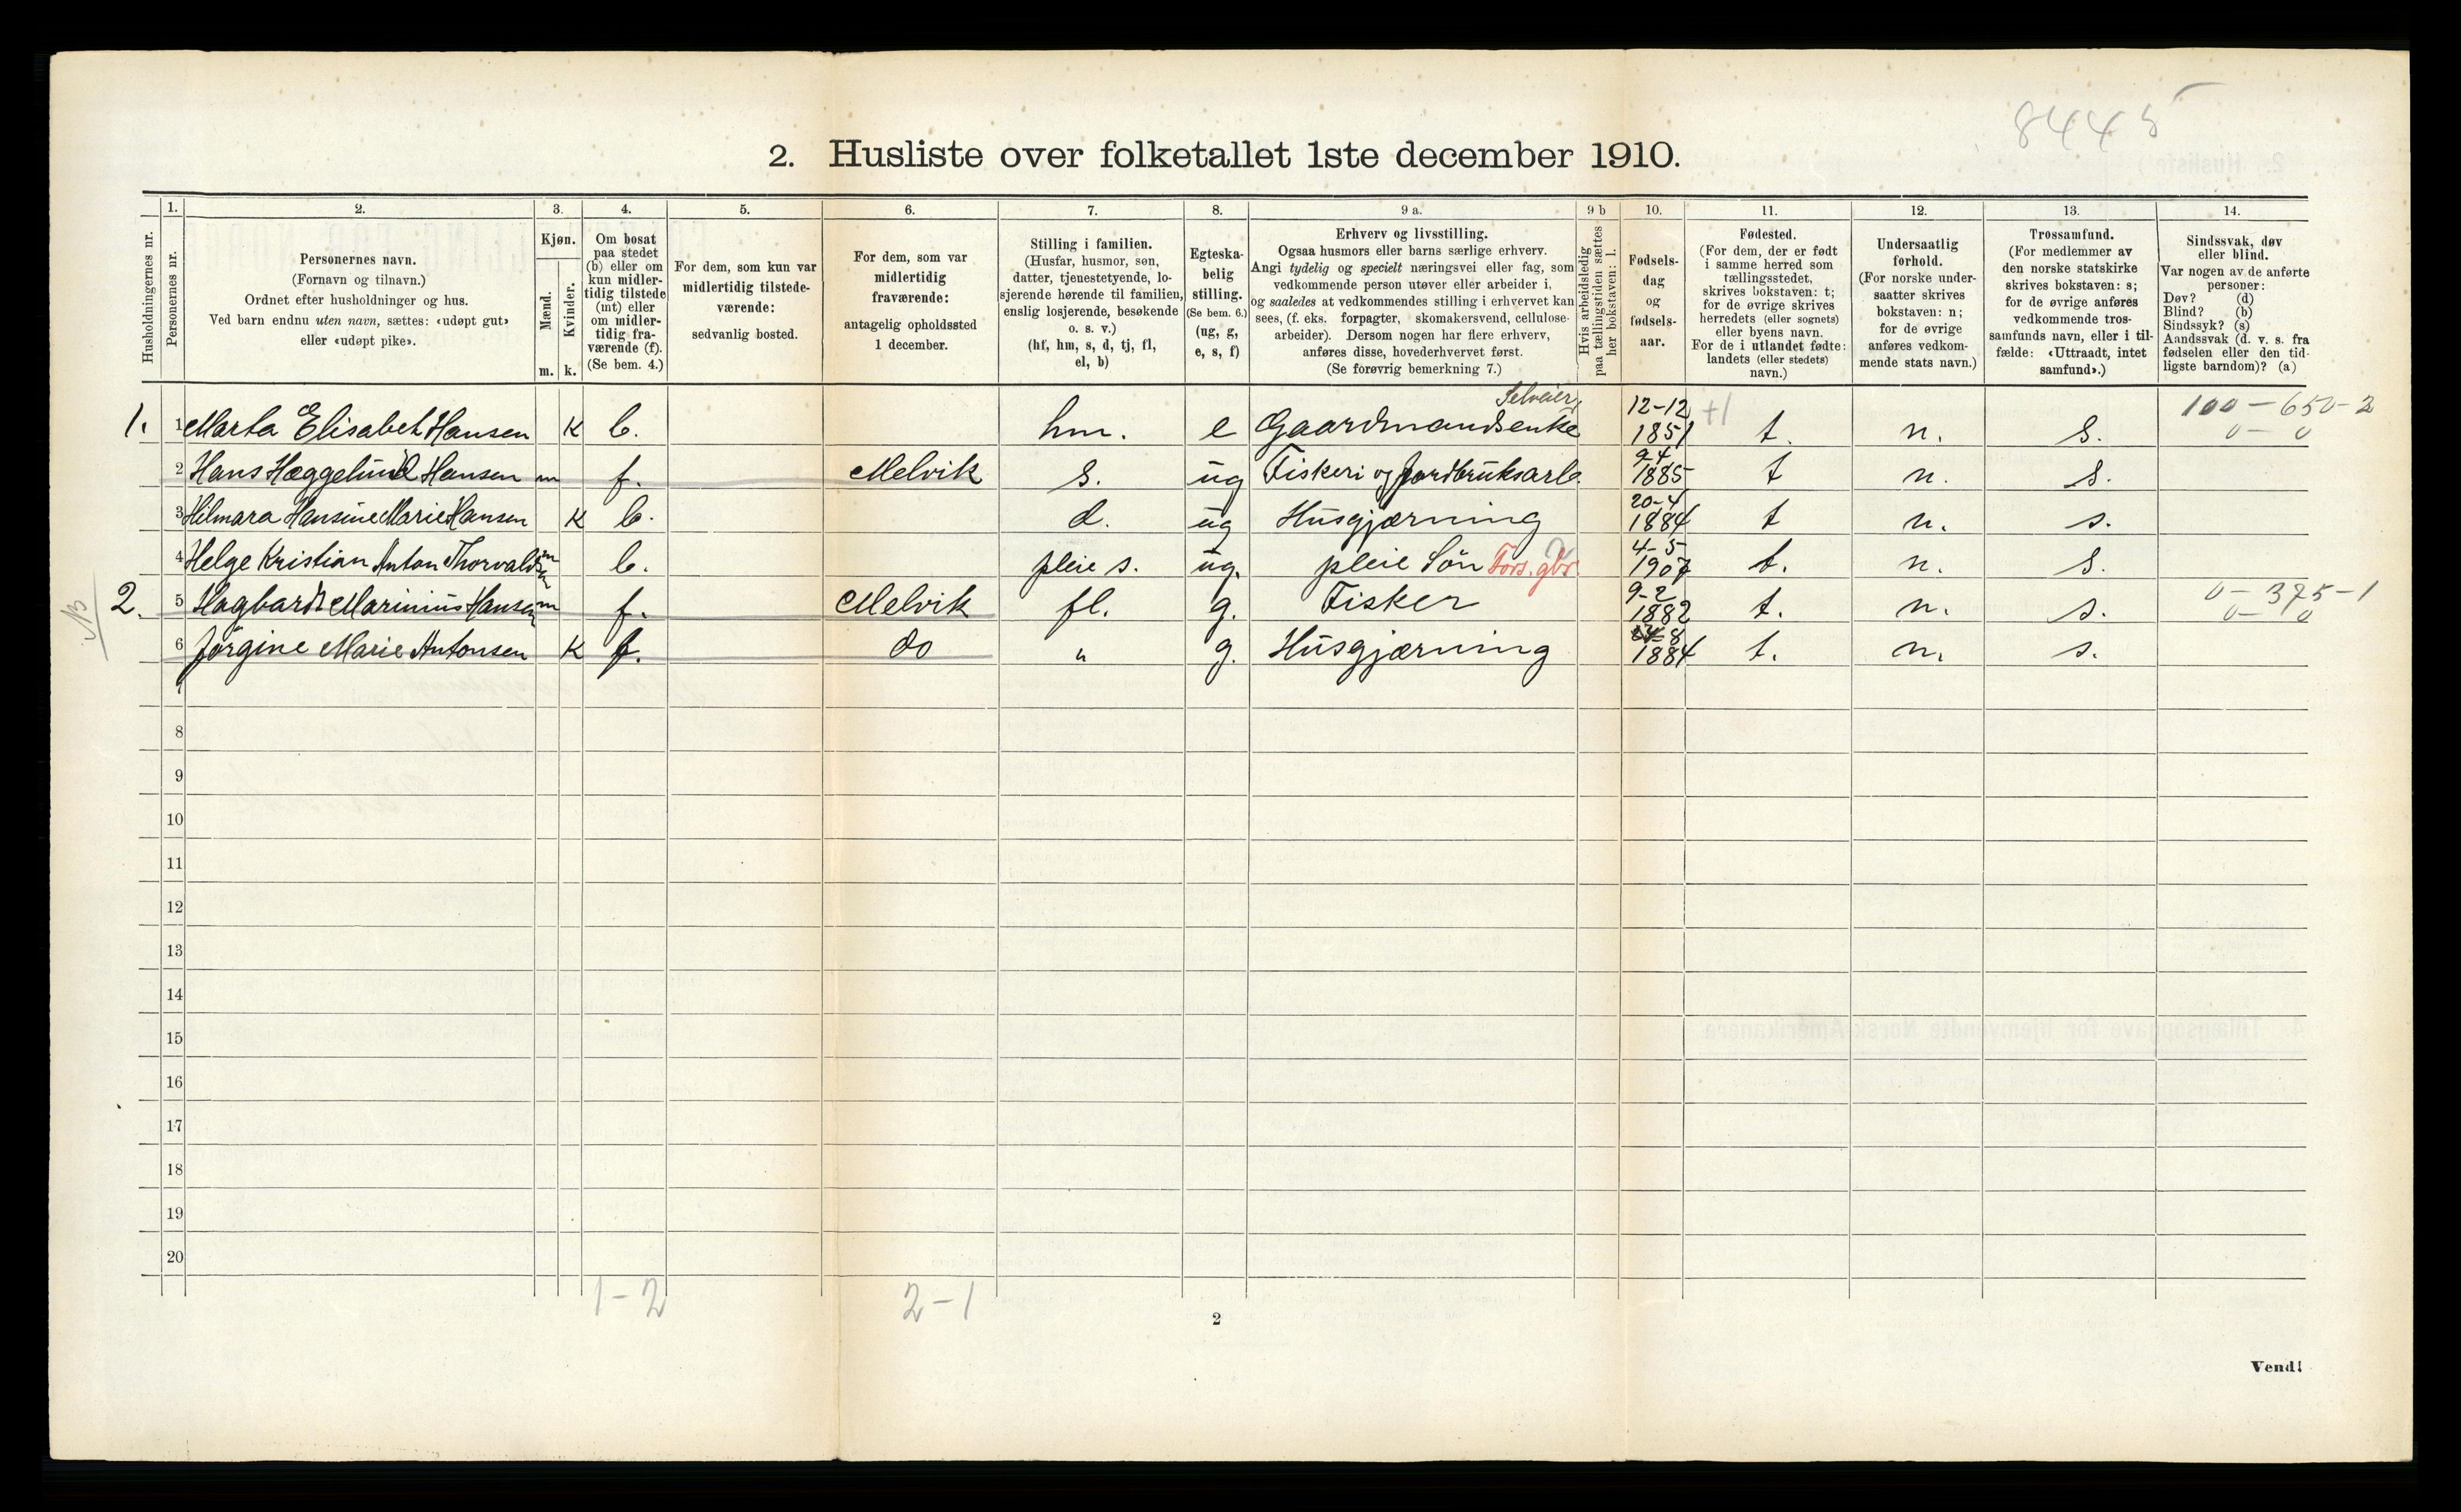 8445
2. Husliste over folketallet 1ste december 1910.
Husholdningernes nr.
1.
Personernes nr.
2.
Personernes navn.
(Fornavn og tilnavn.)
Ordnet efter husholdninger og hus.
Ved barn endnu uten navn, sættes: «udøpt gut»
eller «udøpt pike».
3.
Kjøn.
Mænd.
Kvinder.
m. k.
4.
Om bosat
paa stedet
(b) eller om
kun midler-
tidig tilstede
(mt) eller
om midler-
tidig fra-
værende (f).
(Se bem. 4.)
5.
For dem, som kun var
midlertidig tilstede-
værende:
sedvanlig bosted.
6.
For dem, som var
midlertidig
fraværende:
antagelig opholdssted
1 december.
7.
Stilling i familien.
(Husfar, husmor, søn,
datter, tjenestetyende, lo-
sjerende hørende til familien,
enslig losjerende, besøkende
o. s. v.)
(hf, hm, s, d, tj, fl,
el, b)
8.
Egteska-
belig
stilling.
(Se bem. 6.)
(ug, g,
e, s, f)
9 a.
Erhverv og livsstilling.
Ogsaa husmors eller barns særlige erhverv.
Angi tydelig og specielt næringsvei eller fag, som
vedkommende person utøver eller arbeider i,
og saaledes at vedkommendes stilling i erhvervet kan
sees, (f. eks. forpagter, skomakersvend, cellulose-
arbeider). Dersom nogen har flere erhverv,
anføres disse, hovederhvervet først.
(Se forøvrig bemerkning 7.)
9 b
Hvis arbeidsledig
paa tællingstiden sættes
her bokstaven: l.
10.
Fødsels-
dag
og
fødsels-
aar.
11.
Fødested.
(For dem, der er født
i samme herred som
tællingsstedet,
skrives bokstaven: t;
for de øvrige skrives
herredets (eller sognets)
eller byens navn.
For de i utlandet fødte:
landets (eller stedets)
navn.)
12.
Undersaatlig
forhold.
(For norske under-
saatter skrives
bokstaven: n;
for de øvrige
anføres vedkom-
mende stats navn.)
13.
Trossamfund.
(For medlemmer av
den norske statskirke
skrives bokstaven: s;
for de øvrige anføres
vedkommende tros-
samfunds navn, eller i til-
fælde: «Uttraadt, intet
samfund».)
14.
Sindssvak, døv
eller blind.
Var nogen av de anførte
personer:
Døv? (d)
Blind? (b)
Sindssyk? (s)
Aandssvak (d. v. s. fra
fødselen eller den tid-
ligste barndom)? (a)
1. 1 Marta Elisabet Hansen K b. hm. e Selveier, Gaardmandsenke 12-12 1851 +1 t. n. s. 100-650-2 0-0
2 Hans Hæggelund Hansen m f. Melvik s. ug Fiskeri og jordbruksarb. 9-4 1885 t n. s.
3 Hilmara Hansine Marie Hansen K b. d. ug Husgjærning 20-4 1884 t n. s.
4 Helge Kristian Anton Thorvaldsen m b. pleie s. ug. pleie Sön Fors. gbr. 4-5 1907 t. n. s.
NB 2. 5 Hagbardt Marinius Hansen m f. Melvik fl. g. Fisker 9-2 1882 t. n. s. 0-375-1 0-0
6 Jørgine Marie Antonsen K f. do " g. Husgjærning 8 1884 t. n. s.
7
8
9
10
11
12
13
14
15
16
17
18
19
20
1-2 2-1
2
Vend!